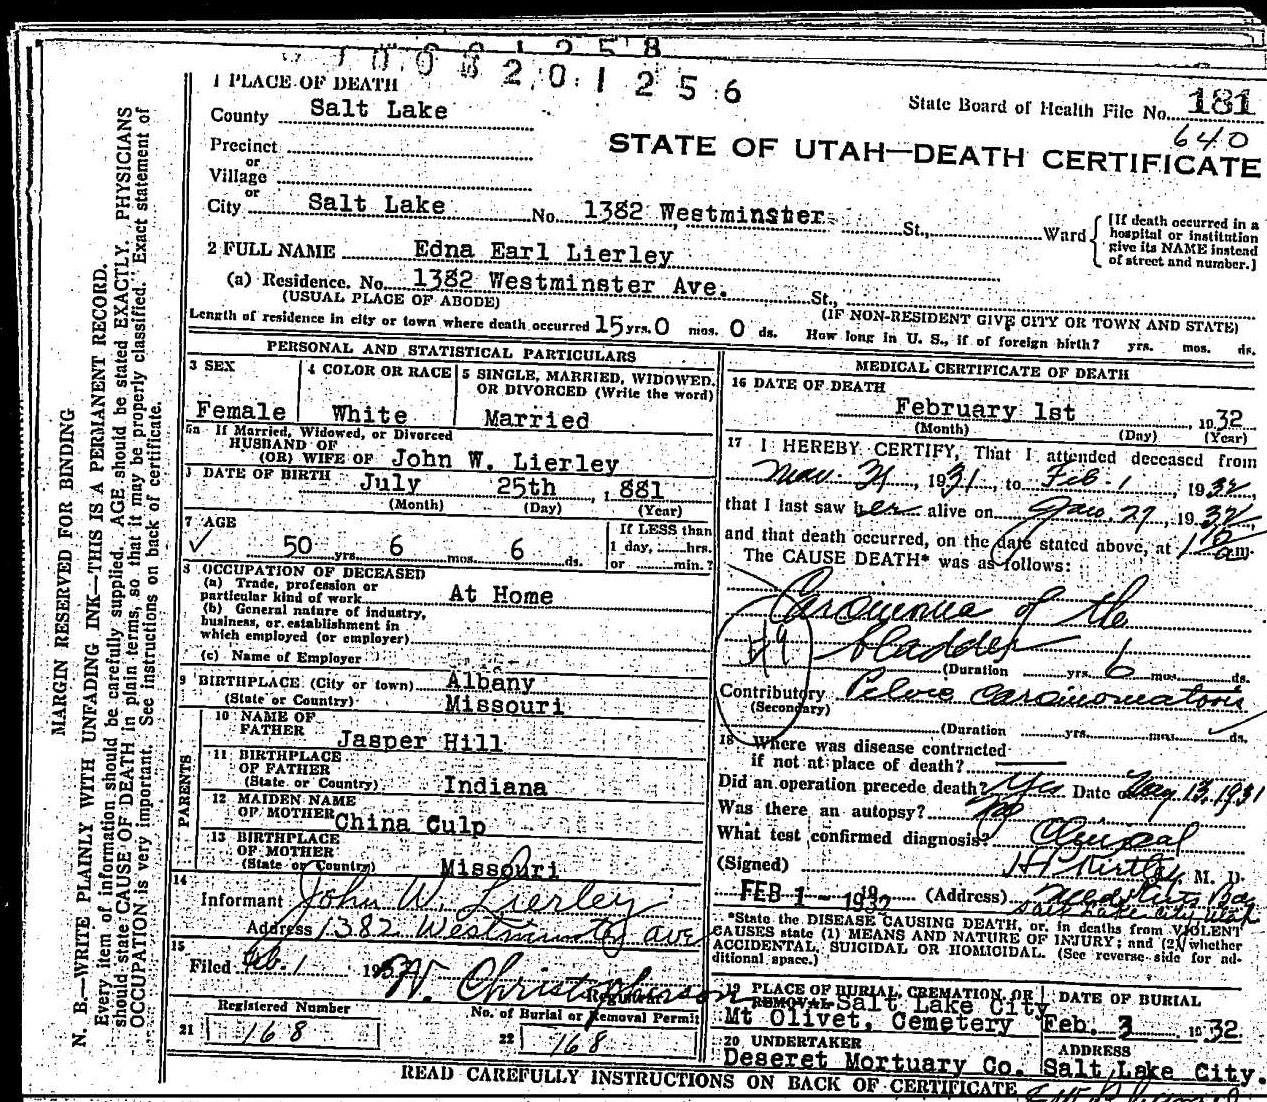 8201256
1 PLACE OF DEATH
State Board of Health File No. 181
640
County Salt Lake
STATE OF UTAH—DEATH CERTIFICATE
Precinct
or
Village
or
City Salt Lake No. 1382 Westminster St., Ward
[If death occurred in a hospital or institution give its NAME instead of street and number.]
2 FULL NAME Edna Earl Lierley
(a) Residence. No. 1382 Westminster Ave. St.,
(USUAL PLACE OF ABODE) (IF NON-RESIDENT GIVE CITY OR TOWN AND STATE)
Length of residence in city or town where death occurred 15 yrs. 0 mos. 0 ds. How long in U. S., if of foreign birth? yrs. mos. ds.
PERSONAL AND STATISTICAL PARTICULARS
3 SEX
Female
4 COLOR OR RACE
White
5 SINGLE, MARRIED, WIDOWED, OR DIVORCED (Write the word)
Married
5a If Married, Widowed, or Divorced
HUSBAND OF
(OR) WIFE OF John W. Lierley
DATE OF BIRTH July 25th, 1881
(Month) (Day) (Year)
7 AGE
50 yrs. 6 mos. 6 ds.
If LESS than
1 day, hrs.
or min.?
8 OCCUPATION OF DECEASED
(a) Trade, profession or
particular kind of work At Home
(b) General nature of industry,
business, or establishment in
which employed (or employer)
(c) Name of Employer
9 BIRTHPLACE (City or town) Albany
(State or Country) Missouri
PARENTS
10 NAME OF
FATHER Jasper Hill
11 BIRTHPLACE
OF FATHER
(State or Country) Indiana
12 MAIDEN NAME
OF MOTHER China Culp
13 BIRTHPLACE
OF MOTHER
(State or Country) Missouri
14
Informant John W. Lierley
Address 1382 Westminster ave
15
Filed Feb. 1 193 W. Christopherson
Registrar
Registered Number
21 168
No. of Burial or Removal Permit
22 168
MEDICAL CERTIFICATE OF DEATH
16 DATE OF DEATH
February 1st, 1932
(Month) (Day) (Year)
17 I HEREBY CERTIFY, That I attended deceased from
1931, to Feb. 1, 1932,
that I last saw her alive on Jan. 29, 1932,
and that death occurred, on the date stated above, at am.
The CAUSE DEATH* was as follows:
Carcinoma of the
49 bladder
(Duration yrs. 6 mos. ds.
Contributory Pelvic Carcinomatosis
(Secondary)
(Duration yrs. mos. ds.
18 Where was disease contracted
if not at place of death?
Did an operation precede death? Yes Date of 13, 1931
Was there an autopsy? No
What test confirmed diagnosis? Clinical
(Signed) Kirtley, M. D.
FEB 1 - 1932 19 (Address)
Salt Lake City Utah
*State the DISEASE CAUSING DEATH, or, in deaths from VIOLENT
CAUSES state (1) MEANS AND NATURE OF INJURY; and (2) whether
ACCIDENTAL, SUICIDAL OR HOMICIDAL. (See reverse side for ad-
ditional space.)
19 PLACE OF BURIAL, CREMATION, OR
REMOVAL Salt Lake City
Mt Olivet, Cemetery
DATE OF BURIAL
Feb. 3 1932
20 UNDERTAKER
Deseret Mortuary Co.
ADDRESS
Salt Lake City.
READ CAREFULLY INSTRUCTIONS ON BACK OF CERTIFICATE
MARGIN RESERVED FOR BINDING
N. B.—WRITE PLAINLY WITH UNFADING INK—THIS IS A PERMANENT RECORD.
Every item of information should be carefully supplied. AGE should be stated EXACTLY. PHYSICIANS
should state CAUSE OF DEATH in plain terms, so that it may be properly classified. Exact statement of
OCCUPATION is very important. See instructions on back of certificate.